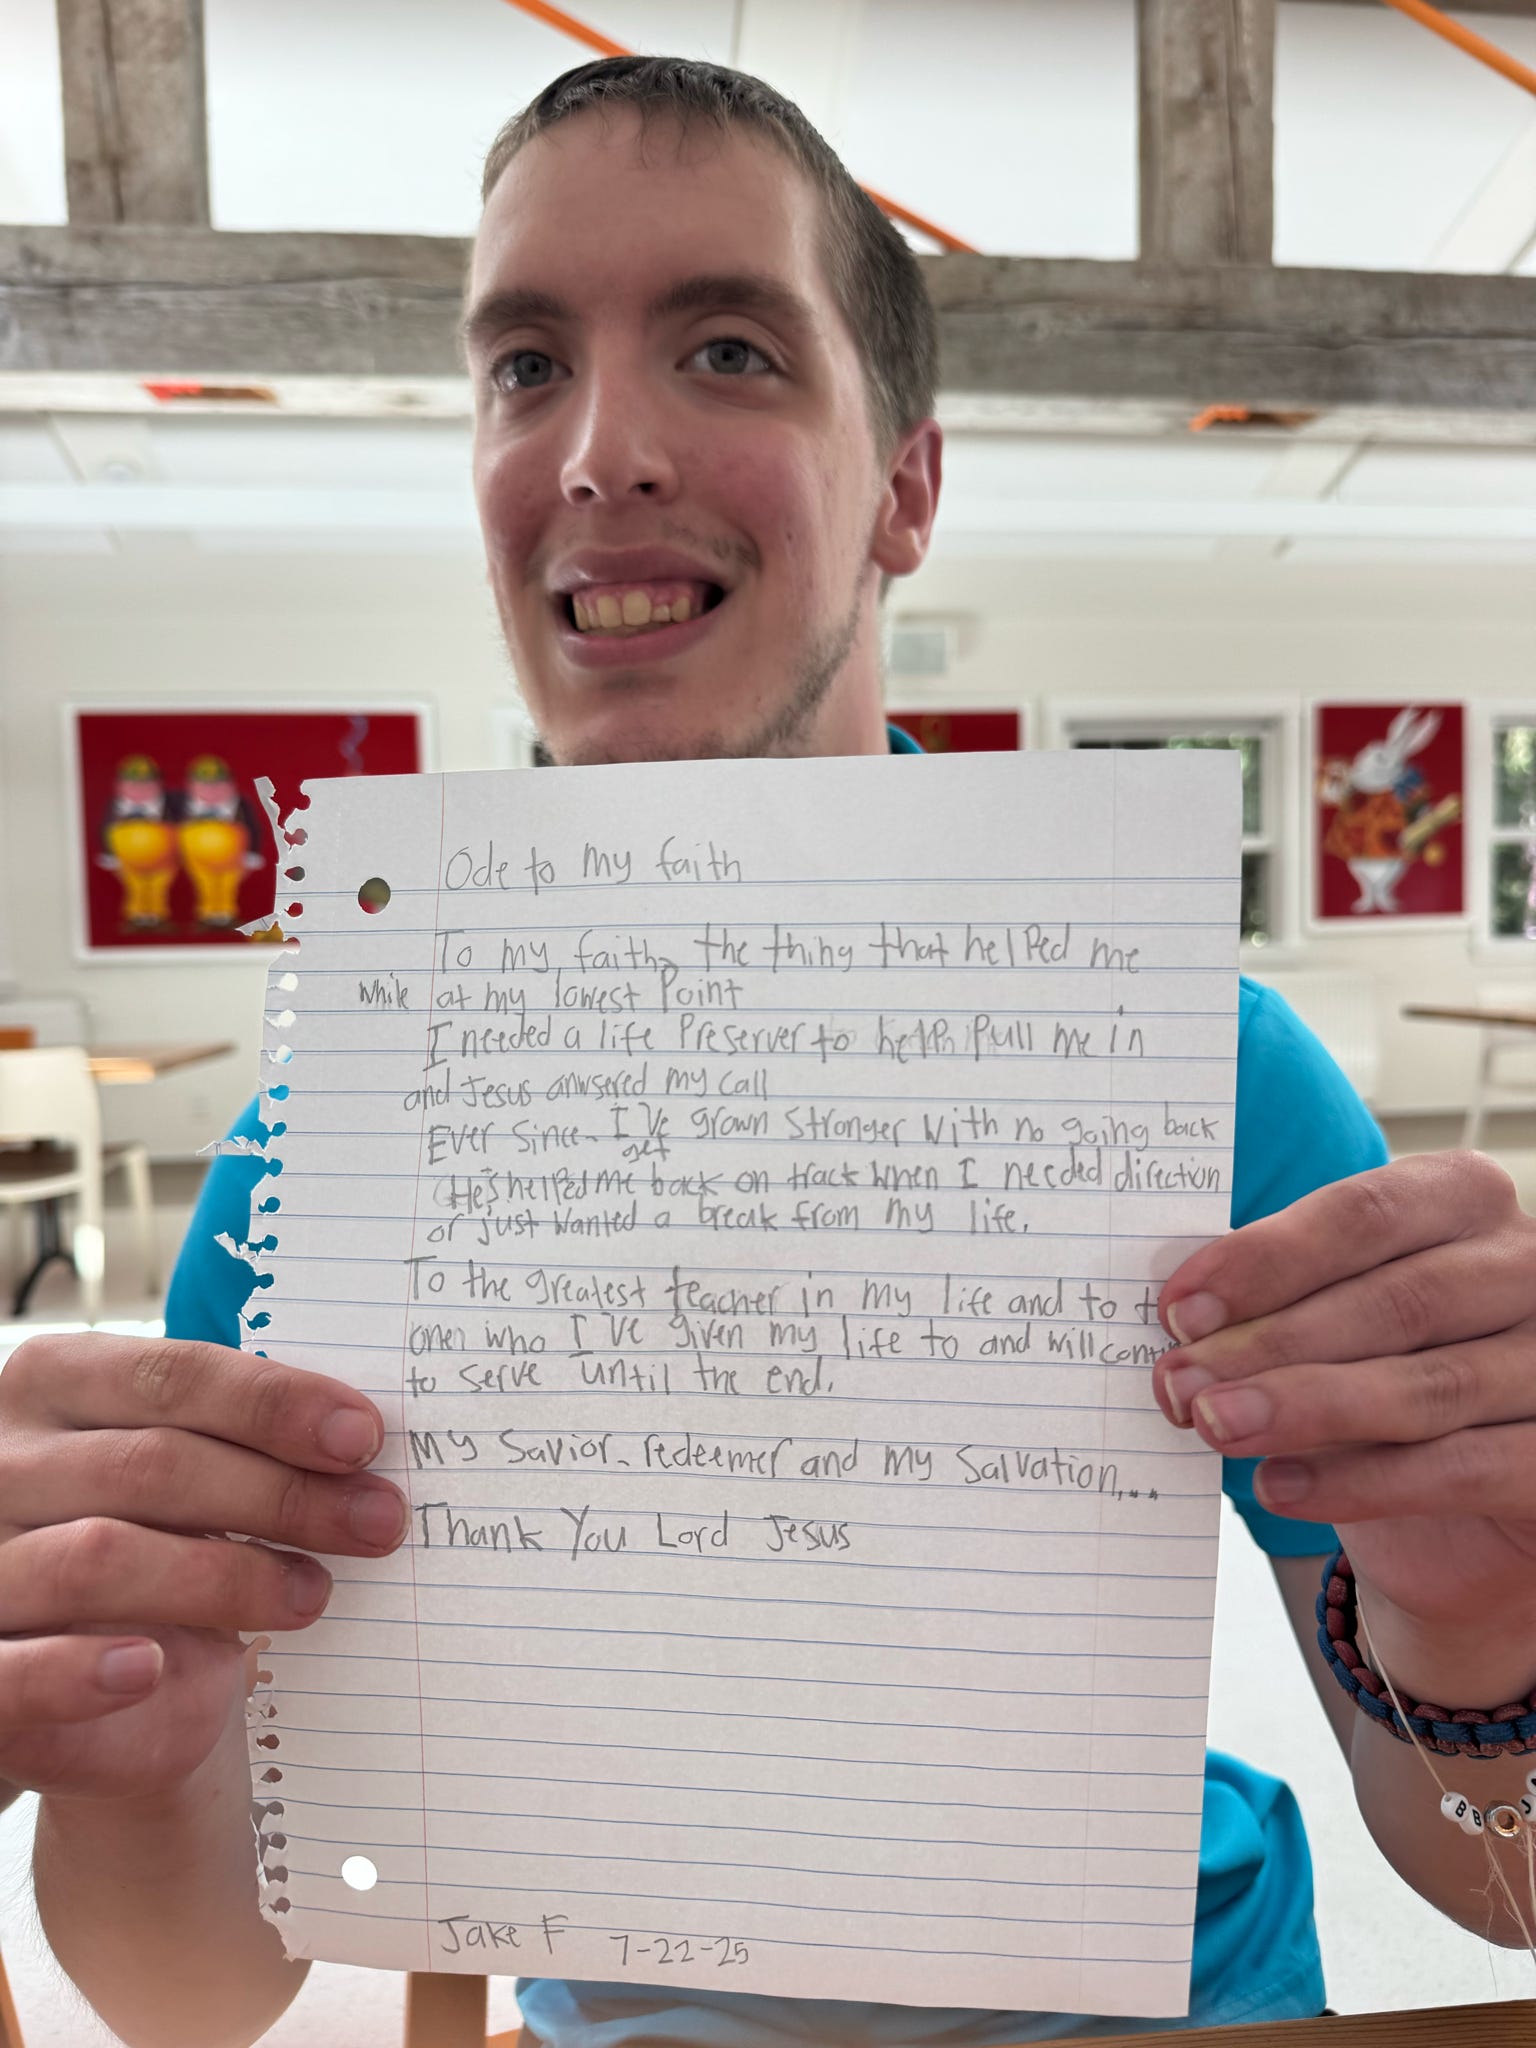 Ode to my faith
To my faith, the thing that helped me
while at my lowest point
I needed a life preserver to help pull me in
and Jesus anwsered my call
Ever since, I've grown stronger with no going back
get
He's helped me back on track when I needed direction
or just wanted a break from my life.
To the greatest teacher in my life and to
one who I've given my life to and will
to serve until the end.
My Savior, redeemer and my Salvation...
Thank You Lord Jesus
Jake F 7-22-25
BB J